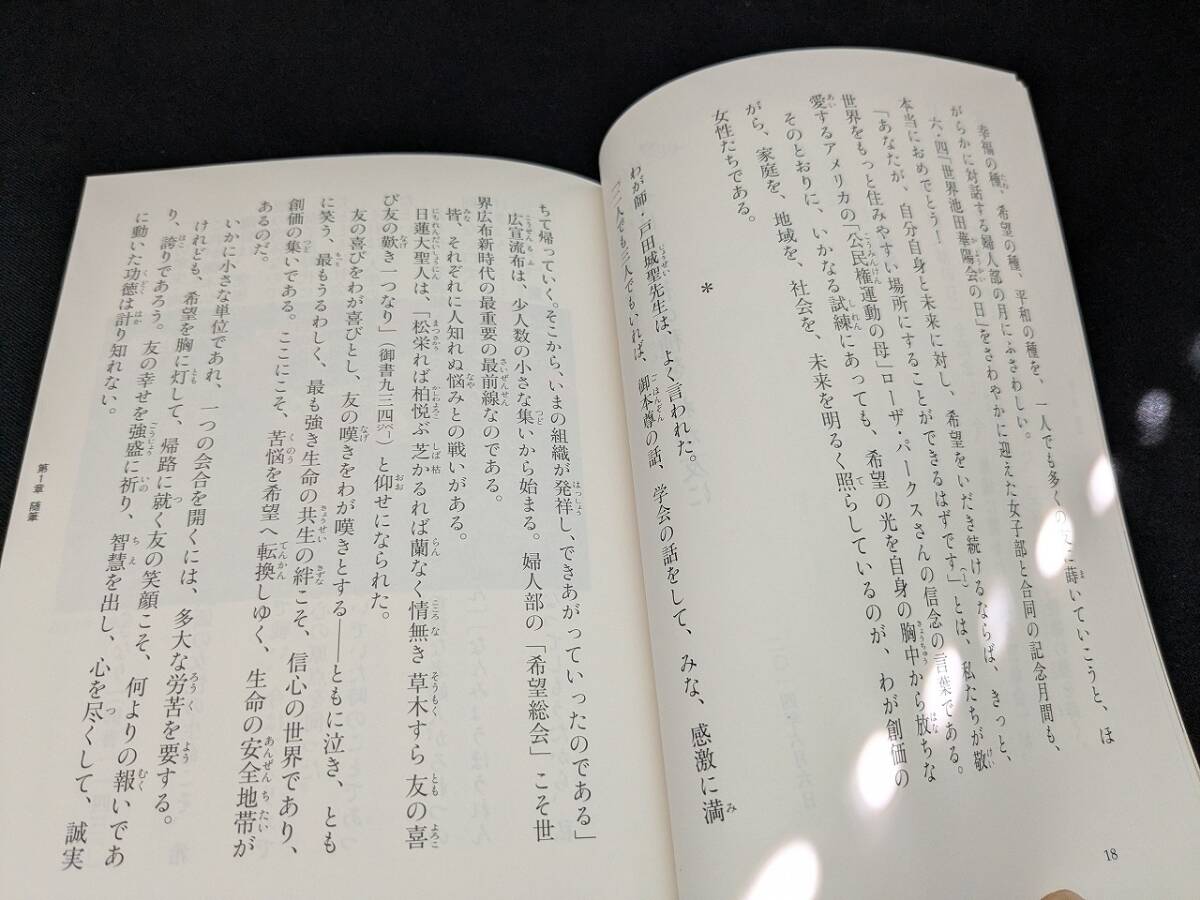 幸福の種、希望の種、平和の種を、一人でも多くの友に蒔いていこうと、ほ
がらかに対話する婦人部の月にふさわしい。
六・四「世界池田華陽会の日」をさわやかに迎えた女子部と合同の記念月間も、
本当におめでとう!
「あなたが、自分自身と未来に対し、希望をいだき続けるならば、きっと、
世界をもっと住みやすい場所にすることができるはずです」(1)とは、私たちが敬
愛するアメリカの「公民権運動の母」ローザ・パークスさんの信念の言葉である。
そのとおりに、いかなる試練にあっても、希望の光を自身の胸中から放ちな
がら、家庭を、地域を、社会を、未来を明るく照らしているのが、わが創価の
女性たちである。
*
わが師・戸田城聖先生は、よく言われた。
「二人でも三人でもいれば、御本尊の話、学会の話をして、みな、感激に満
18
ちて帰っていく。そこから、いまの組織が発祥し、できあがっていったのである」
広宣流布は、少人数の小さな集いから始まる。婦人部の「希望総会」こそ世
界広布新時代の最重要の最前線なのである。
皆、それぞれに人知れぬ悩みとの戦いがある。
日蓮大聖人は、「松栄れば柏悦ぶ芝かるれば蘭なく情無き草木すら友の喜
び友の歎き一つなり」(御書九三四ページ)と仰せになられた。
友の喜びをわが喜びとし、友の嘆きをわが嘆きとする——ともに泣き、とも
に笑う、最もうるわしく、最も強き生命の共生の絆こそ、信心の世界であり、
創価の集いである。ここにこそ、苦悩を希望へ転換しゆく、生命の安全地帯が
あるのだ。
いかに小さな単位であれ、一つの会合を開くには、多大な労苦を要する。
けれども、希望を胸に灯して、帰路に就く友の笑顔こそ、何よりの報いであ
り、誇りであろう。友の幸せを強盛に祈り、智慧を出し、心を尽くして、誠実
に動いた功徳は計り知れない。
第1章 随筆